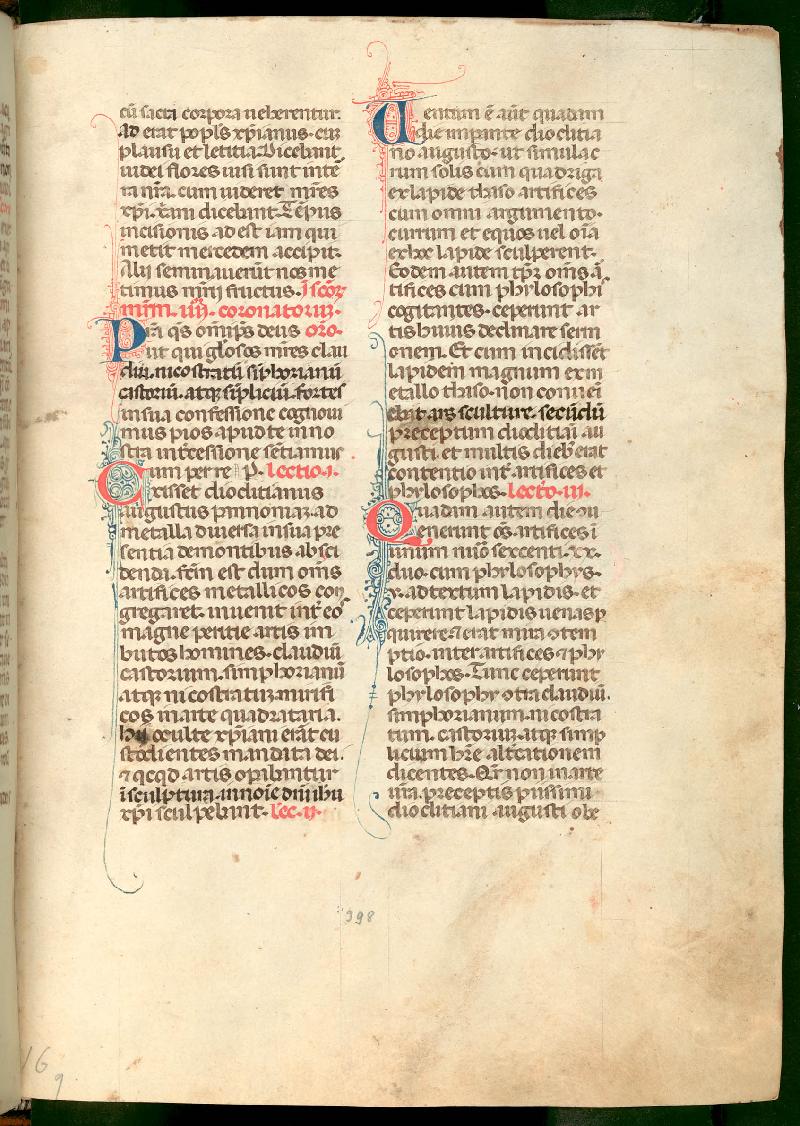 cū sacra corpora ueherentur.
Ad erat popl's xp̄ianus. cuȝ
plausu et letitia. Dicebant
iudei flores iusi sunt inte
ra nr̄a. cum uideret mr̄es
xp̄i. xani dicebant. Tēpus
incisionis ad est iam qui
metit mercedem accipit.
Alij seminauerūt nos me
timus mr̄ij fructus. I scōꝝ
mr̄m. iiij. coronatoruȝ.
Pr̄a qs om̄ip̄s deus oro.
ut qui gl'osos mr̄es clau
diū. nicostratū siphorianū
castoriū. atqȝ sipliciū. fortes
in sua confessione cognoui
mus pios apud te in no
stra int̄cessione sētiamus
Cum per re P. Lectio. i.
xisset dioclitianus
augustus pannonias. ad
metalla diuersa in sua pre
sentia de montibus absci
denda. fc̄m est dum om̄s
artifices metallicos con
gregaret. inuenit int̄ eos
magne peritie artis im
butos homines. claudiū
castorium. simphorianū
atqȝ nicostratuȝ. mirifi
cos in arte quadrataria.
hij oculte xp̄iani erāt cu
stodientes mandata dei.
⁊ qcqd artis op̄abantur
ī sculptura. in noīe dn̄i ihu
xp̄i sculpebant. Lec. ij.
Uentum ē aūt quadam
die imp̄ante dioclitia
no augusto. ut simulac
rum solis cum quadriga
ex lapide thaso artifices
cum omni argumento.
currum et equos uel oīa
ex hoc lapide sculperent.
Eodem autem tp̄r om̄s ā
tifices cum phylosophi
cogitantes. ceperunt ar
tis huius declinare serm
onem. Et cum incidisset
lapidem magnum ex m
etallo thaso. non conuei
ebat ars sculture. secūdū
preceptum dioclitiani au
gusti. et multis dieb' erat
contentio int̄ artifices et
phylosophos. Lectō. iii.
Quadam autem die cu
enerunt ōs artifices ī
unum nūo sexcenti. xx.
duo. cum phylosophys.
v. ad textum lapidis. et
ceperunt lapidis uenas p
quirere ⁊ erat mira ↄtem
ptio. inter artifices ⁊ phy
losophos. Tunc ceperunt
phylosophy ↄtra claudiū.
simphorianum. nicostra
tum. castoriuȝ. atqȝ simp
licium hr̄e alt̄cationem
dicentes. Qr̄ non in arte
ur̄a. preceptis piissimi
dioclitiani augusti obe
398
16
9